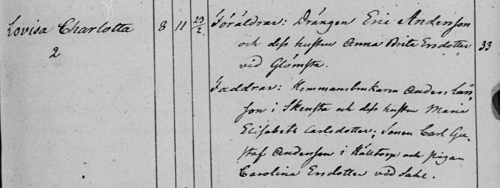 Lovisa Charlotta 8 11 23/2 Föräldrar: Drängen Eric Andersson
2 och dess hustru Anna Brita Ersdotter 33
vid Glömsta.
Faddrar: Hemmansbrukaren Anders Lars-
son i Skensta och dess hustru Maria
Elisabeth Carlsdotter; Sonen Carl Gu-
staf Andersson i Hälltorp och pigan
Carolina Ersdotter vid